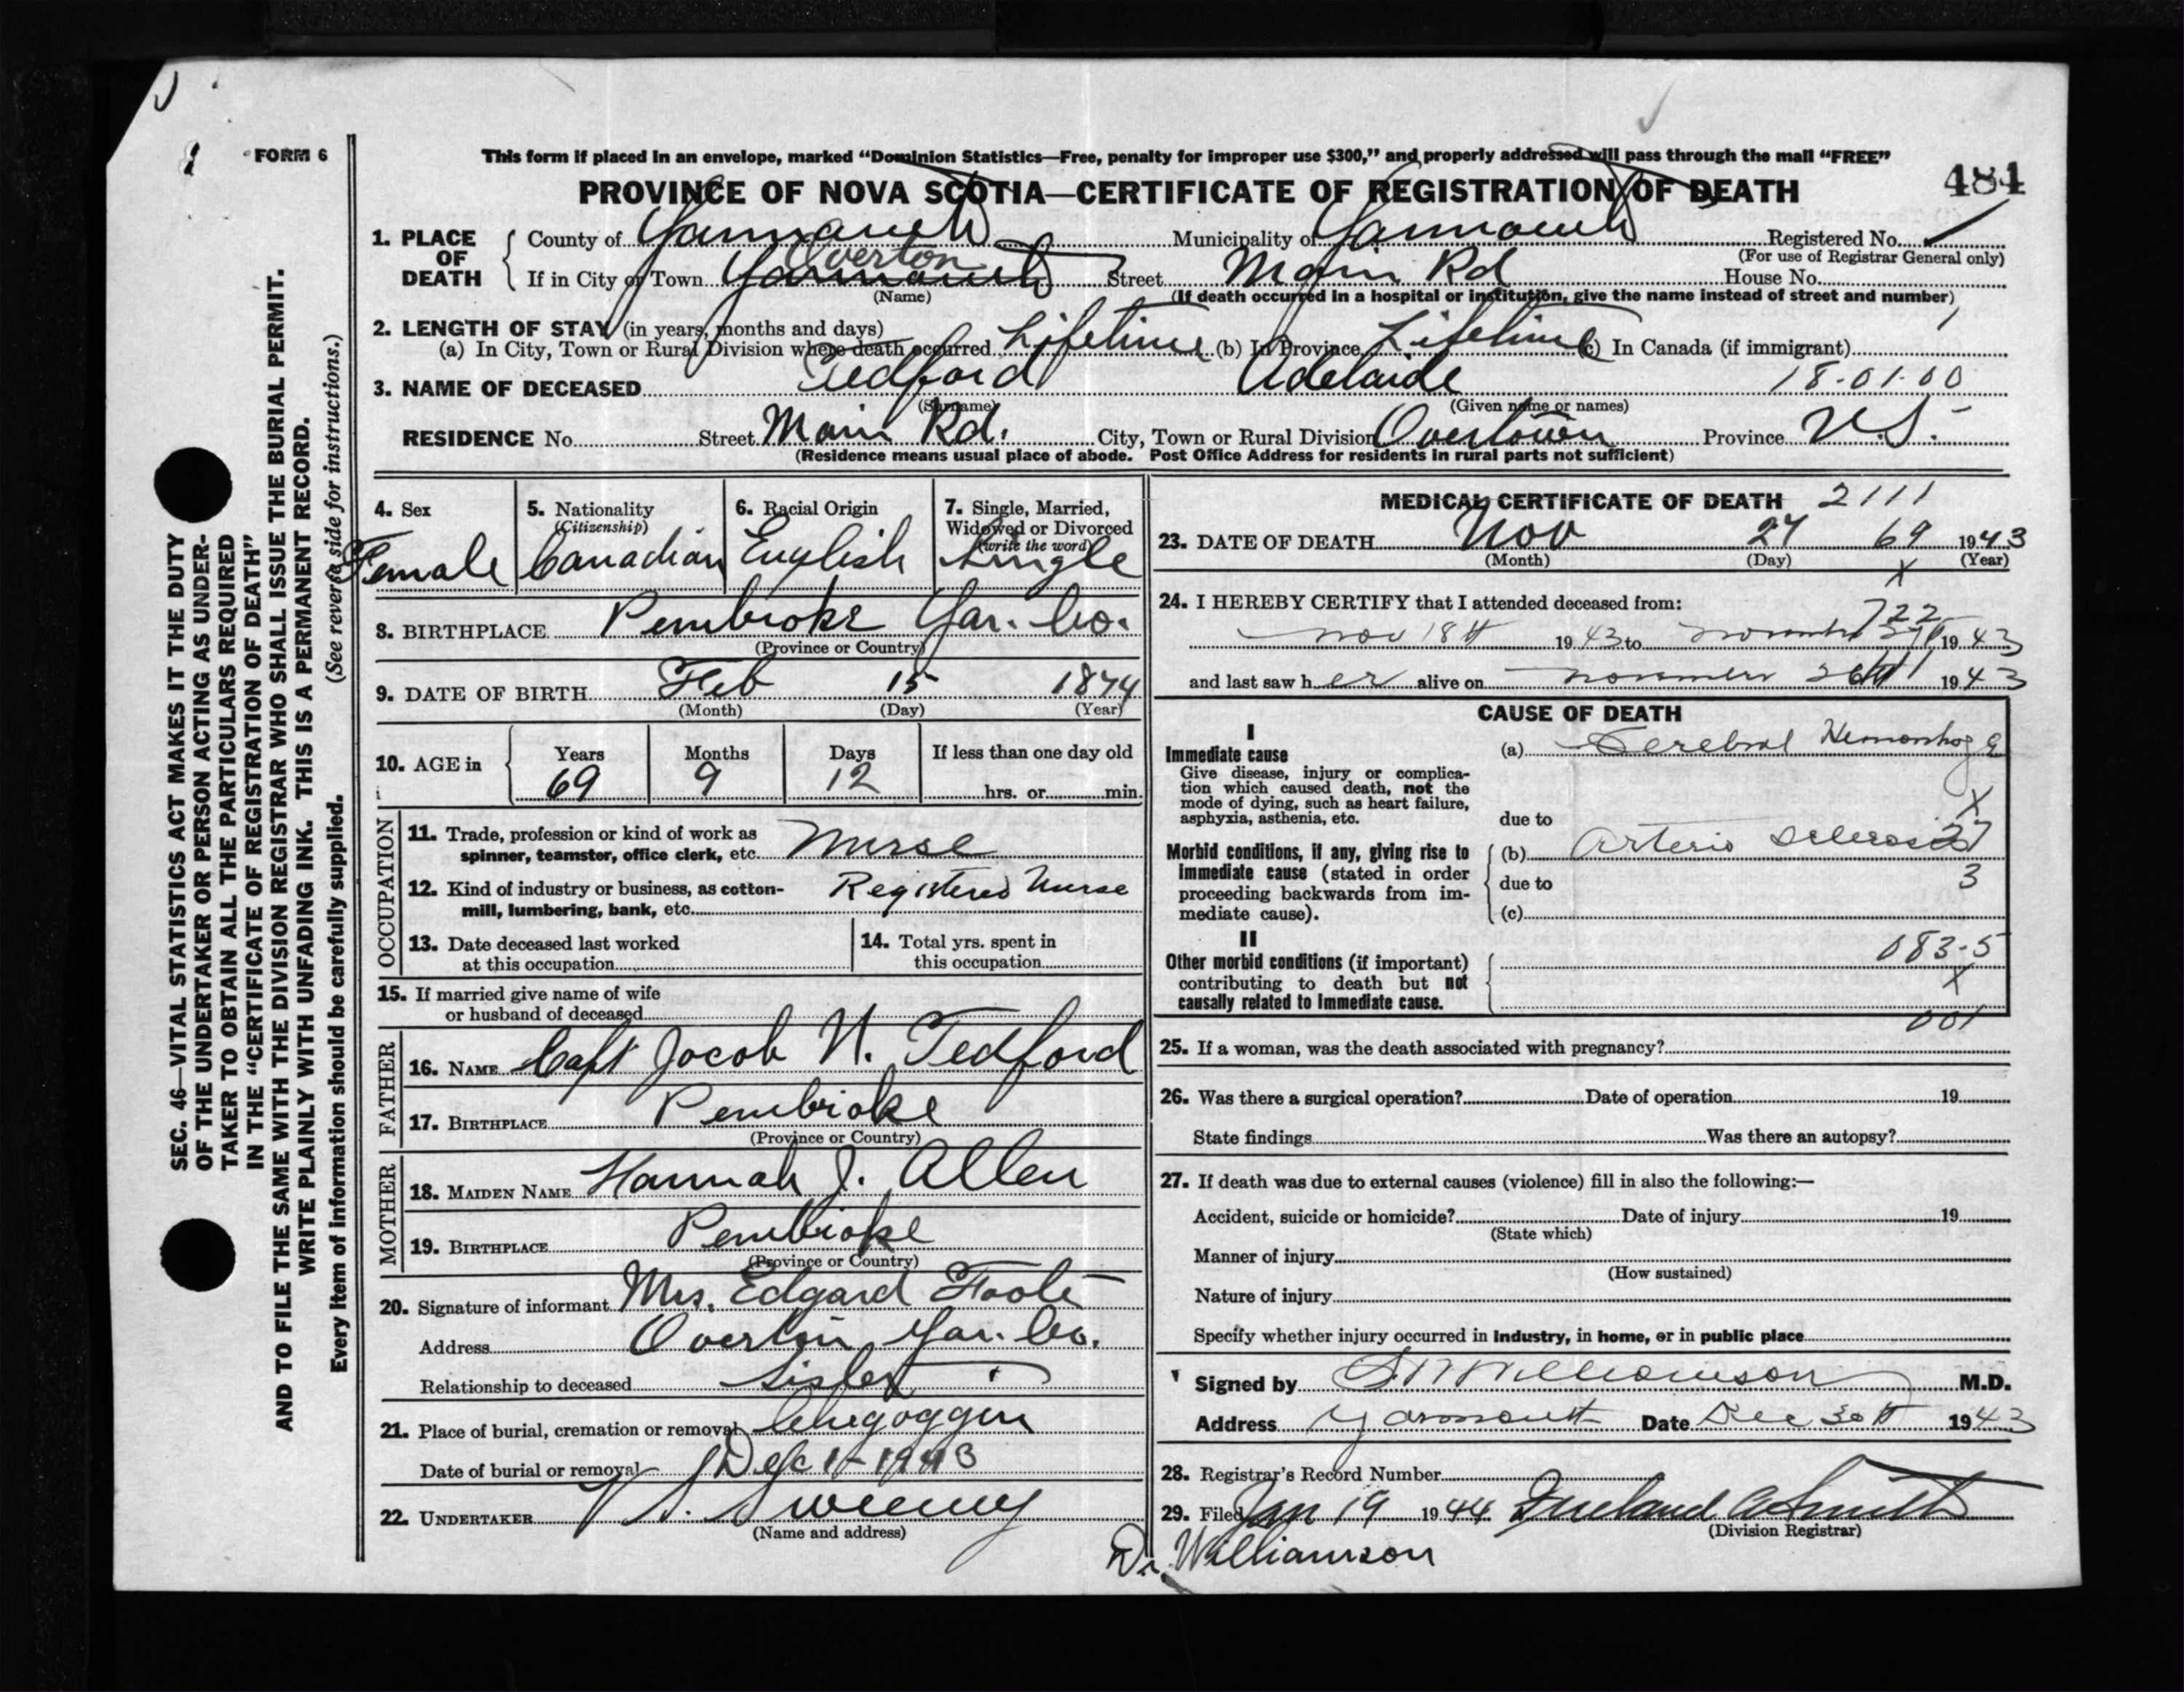 FORM 6
This form if placed in an envelope, marked “Dominion Statistics—Free, penalty for improper use $300,” and properly addressed will pass through the mail “FREE”
PROVINCE OF NOVA SCOTIA—CERTIFICATE OF REGISTRATION OF DEATH
484
1. PLACE OF DEATH
County of Yarmouth Municipality of Yarmouth Registered No.
(For use of Registrar General only)
Overton
If in City or Town Yarmouth Street Main Rd House No.
(Name) (If death occurred in a hospital or institution, give the name instead of street and number)
2. LENGTH OF STAY (in years, months and days)
(a) In City, Town or Rural Division where death occurred Lifetime (b) In Province Lifetime (c) In Canada (if immigrant)
3. NAME OF DECEASED Tedford Adelaide 18-01-00
(Surname) (Given name or names)
RESIDENCE No. Street Main Rd. City, Town or Rural Division Overtown Province N.S.
(Residence means usual place of abode. Post Office Address for residents in rural parts not sufficient)
4. Sex
Female
5. Nationality
(Citizenship)
Canadian
6. Racial Origin
English
7. Single, Married,
Widowed or Divorced
(write the word)
Single
8. BIRTHPLACE Pembroke Yar. Co.
(Province or Country)
9. DATE OF BIRTH Feb 15 1874
(Month) (Day) (Year)
10. AGE in Years Months Days If less than one day old
69 9 12 hrs. or min.
OCCUPATION
11. Trade, profession or kind of work as
spinner, teamster, office clerk, etc. Nurse
12. Kind of industry or business, as cotton-
mill, lumbering, bank, etc. Registered Nurse
13. Date deceased last worked
at this occupation
14. Total yrs. spent in
this occupation
15. If married give name of wife
or husband of deceased
FATHER
16. NAME Capt Jacob N. Tedford
17. BIRTHPLACE Pembroke
(Province or Country)
MOTHER
18. MAIDEN NAME Hannah J. Allen
19. BIRTHPLACE Pembroke
(Province or Country)
20. Signature of informant Mrs. Edgard Foote
Address Overton Yar. Co.
Relationship to deceased Sister
21. Place of burial, cremation or removal Chegoggin
Date of burial or removal Dec 1-1943
22. UNDERTAKER V. S. Sweeny
(Name and address)
MEDICAL CERTIFICATE OF DEATH 2111
23. DATE OF DEATH Nov 27 69 1943
(Month) (Day) (Year)
X
24. I HEREBY CERTIFY that I attended deceased from:
722
Nov 18th 1943 to November 27th 1943
and last saw her alive on November 26th 1943
CAUSE OF DEATH
I
Immediate cause
Give disease, injury or complica-
tion which caused death, not the
mode of dying, such as heart failure,
asphyxia, asthenia, etc.
(a) Cerebral Hemorrhage
X
due to
Morbid conditions, if any, giving rise to
immediate cause (stated in order
proceeding backwards from im-
mediate cause).
(b) Arterio Sclerosis
due to
3
(c)
II
Other morbid conditions (if important)
contributing to death but not
causally related to immediate cause.
083-5
X
001
25. If a woman, was the death associated with pregnancy?
26. Was there a surgical operation? Date of operation 19
State findings Was there an autopsy?
27. If death was due to external causes (violence) fill in also the following:—
Accident, suicide or homicide? Date of injury 19
(State which)
Manner of injury
(How sustained)
Nature of injury
Specify whether injury occurred in industry, in home, or in public place
Signed by Williamson M.D.
Address Yarmouth Date Dec 30th 1943
28. Registrar's Record Number
29. Filed Jan 19 1944 Smith
(Division Registrar)
Dr. Williamson
SEC. 46—VITAL STATISTICS ACT MAKES IT THE DUTY
OF THE UNDERTAKER OR PERSON ACTING AS UNDER-
TAKER TO OBTAIN ALL THE PARTICULARS REQUIRED
IN THE “CERTIFICATE OF REGISTRATION OF DEATH”
AND TO FILE THE SAME WITH THE DIVISION REGISTRAR WHO SHALL ISSUE THE BURIAL PERMIT.
WRITE PLAINLY WITH UNFADING INK. THIS IS A PERMANENT RECORD.
Every item of information should be carefully supplied. (See reverse side for instructions.)